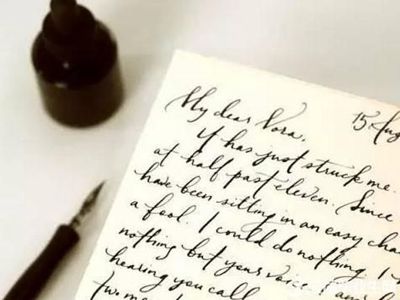 15 Aug
My dear Nora,
It has just struck me.
at half past eleven. Since
have been sitting in an easy chai
a fool. I could do nothing. I
nothing but your voice
hearing you call
two